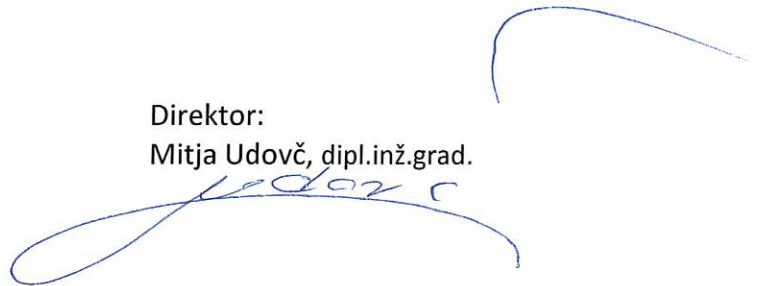 Direktor:
Mitja Udovč, dipl.inž.grad.
Udovč